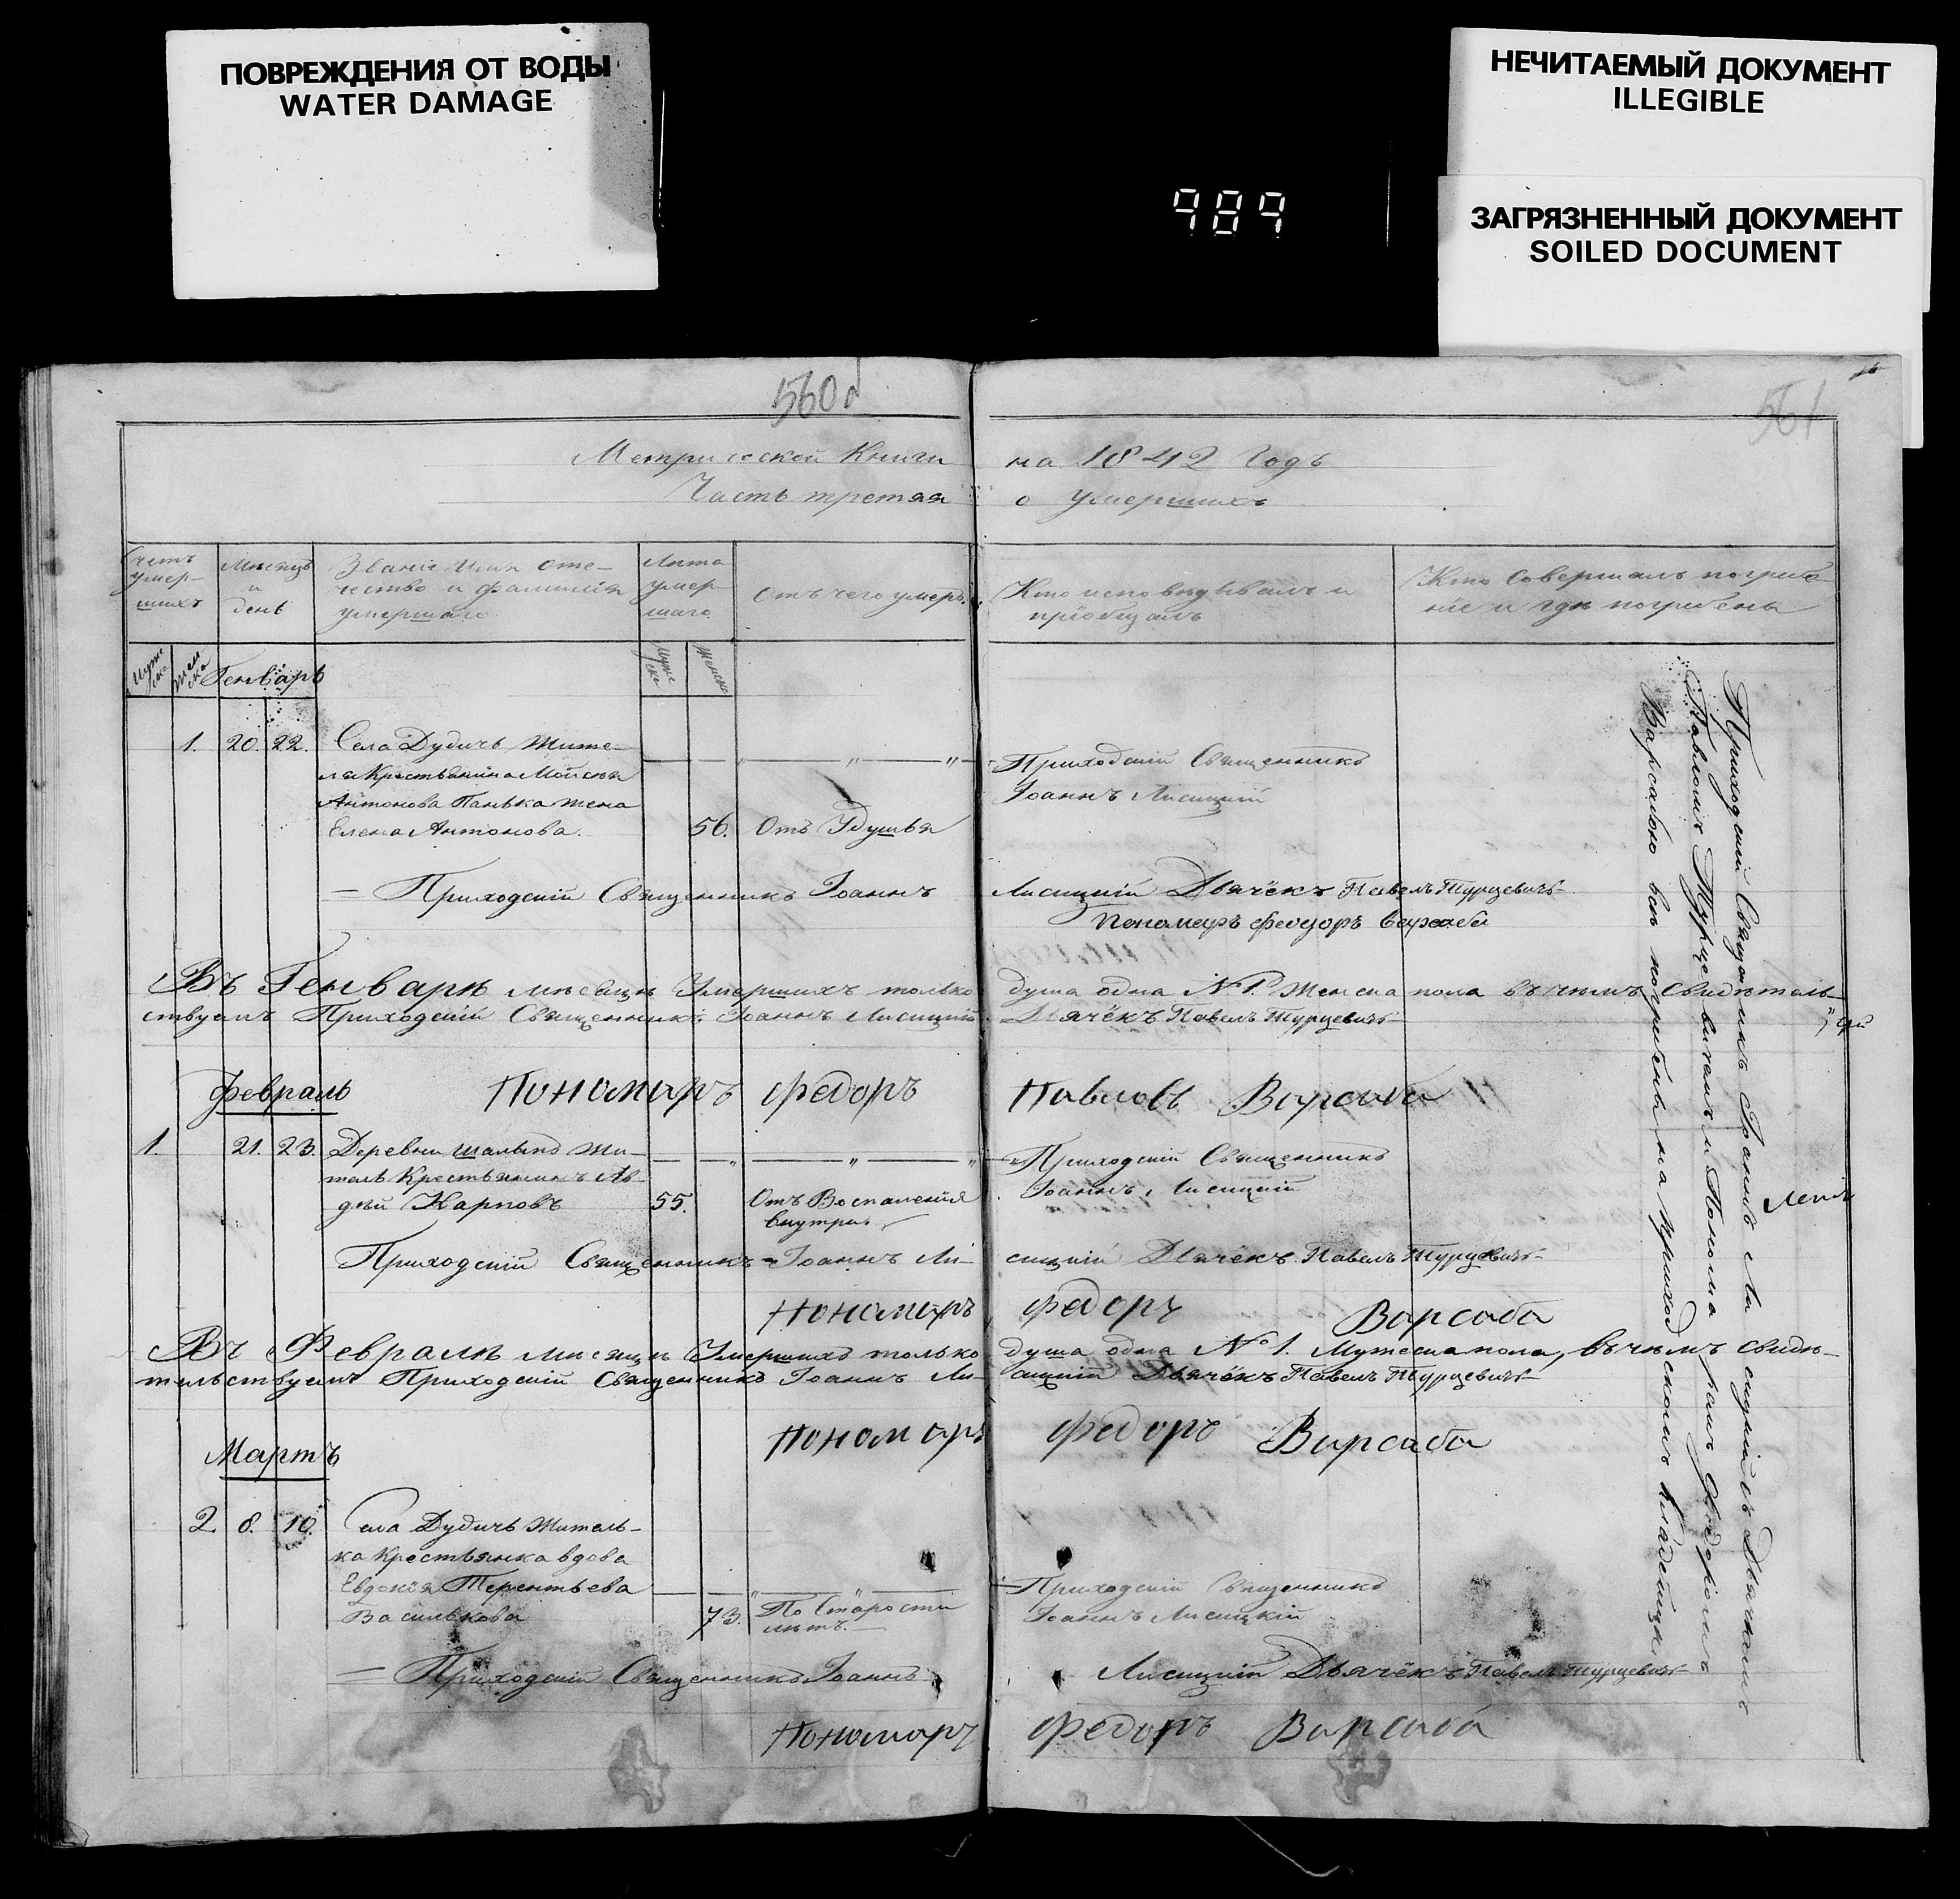 ПОВРЕЖДЕНИЯ ОТ ВОДЫ
WATER DAMAGE
НЕЧИТАЕМЫЙ ДОКУМЕНТ
ILLEGIBLE
989
ЗАГРЯЗНЕННЫЙ ДОКУМЕНТ
SOILED DOCUMENT
560
561
Метрической Книги на 1842 Годъ
Часть третая о умершихъ
Счетъ
умер-
шихъ
Мѣсяцъ
и
день
Званіе Имя Оте-
чество и фамиллія
умершаго
Лѣта
умер-
шаго
Отъ чего умеръ.
Кто исповѣдывалъ и
пріобщалъ
Кто Совершалъ погребе
ніе и гдѣ погребены
Муже
ска
Жен
ска
Генварь
Муже
ска
Женска
1. 20. 22. Села Дудичъ Жите-
ля Крестьянина Моисея
Антонова Панька жена
Елена Антонова. 56. Отъ Удушья
Приходскій Священникъ
Іоаннъ Лисицкій
= Приходскій Священникъ Іоаннъ Лисицкій Дьячёкъ Павелъ Турцевичъ
Пономаръ Феодоръ Варсаба
Въ Генварѣ мѣсяцѣ Умершихъ только душа одна №1. Женска пола въ чемъ Свидѣтель-
ствуемъ Приходскій Священникъ Іоаннъ Лисицкій Дьячёкъ Павелъ Турцевичъ
Февраль Пономаръ Федоръ Павловъ Варсаба
1. 21. 23. Деревни Жи-
тель Крестьянинъ Ав-
дѣй Карповъ 55. Отъ Воспаленія
внутри
Приходскій Священникъ
Іоаннъ Лисицкій
Приходскій Священникъ Іоаннъ Ли-сицкій Дьячёкъ Павелъ Турцевичъ
Пономаръ Федоръ Варсаба
Въ Февралѣ мѣсяцѣ Умершихъ только душа одна №1. Мужеска пола, въ чемъ Свидѣ-
тельствуемъ Приходскій Священникъ Іоаннъ Ли-сицкій Дьячёкъ Павелъ Турцевичъ
Пономаръ Федоръ Варсаба
Мартъ
2. 8. 10. Села Дудичъ Житель-
ка Крестьянка вдова
Евдокія Терентьева
Василькова 73. По Старости
лѣтъ.
Приходскій Священникъ
Іоаннъ Лисицкій
= Приходскій Священникъ Іоаннъ Лисицкій Дьячёкъ Павелъ Турцевичъ
Пономаръ Федоръ Варсаба
Приходскій Священникъ Іоаннъ Лисицкій съ Дьячкомъ
Павломъ Турцевичемъ и Пономаремъ Феодоромъ
Варсабою всѣ погребены на приходскомъ кладбищѣ